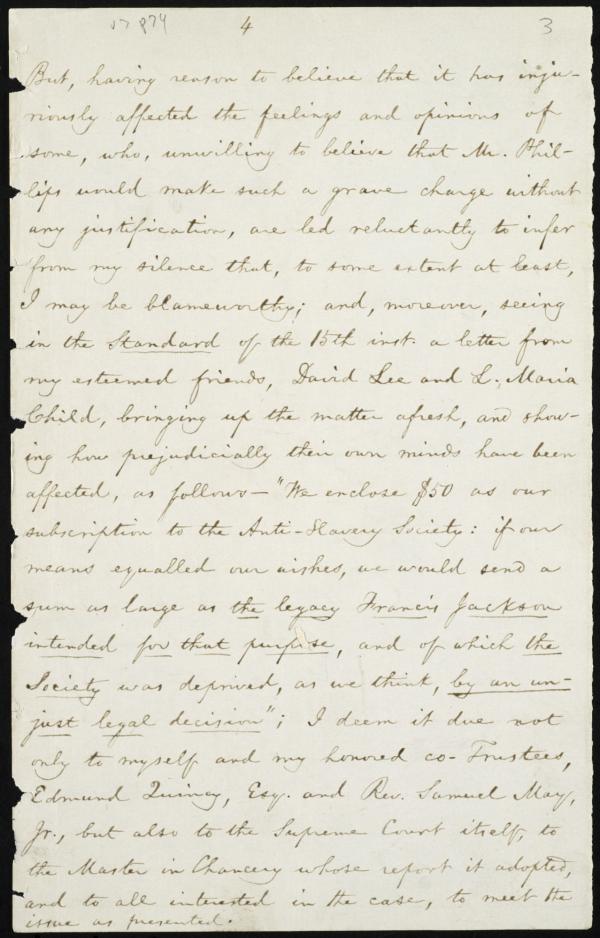 v7 p74 4 3
But, having reason to believe that it has inju-
riously affected the feelings and opinions of
some, who, unwilling to believe that Mr. Phil-
lips would make such a grave charge without
any justification, are led reluctantly to infer
from my silence that, to some extent at least,
I may be blameworthy; and, moreover, seeing
in the Standard of the 15th inst. a letter from
my esteemed friends, David Lee and L. Maria
Child, bringing up the matter afresh, and show-
ing how prejudicially their own minds have been
affected, as follows—"We enclose $50 as our
subscription to the Anti-Slavery Society: if our
means equalled our wishes, we would send a
sum as large as the legacy Francis Jackson
intended for that purpose, and of which the
Society was deprived, as we think, by an un-
just legal decision"; I deem it due not
only to myself and my honored co-Trustees,
Edmund Quincy, Esq. and Rev. Samuel May,
Jr., but also to the Supreme Court itself, to
the Master in Chancery whose report it adopted,
and to all interested in the case, to meet the
issue as presented.